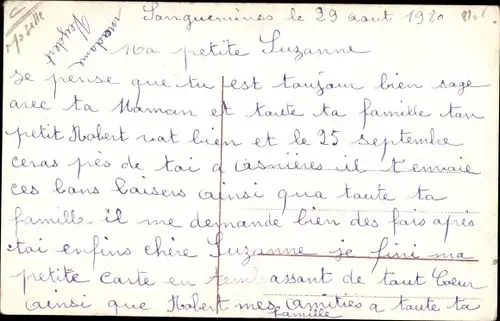 Moselle
Madame
Sarguemines le 29 aout 1920
Ma petite Suzanne
Je pense que tu est toujour bien sage
avec ta Maman et toute ta famille ton
petit Robert vat bien et le 25 septembre
ceras près de toi a Asnières il t'envoie
ces bons baisers ainsi qua toute ta
famille il me demande bien des fois après
toi enfins chère Suzanne je fini ma
petite carte en t'embrassant de tout Coeur
ainsi que Robert mes amitiés a toute ta
famille